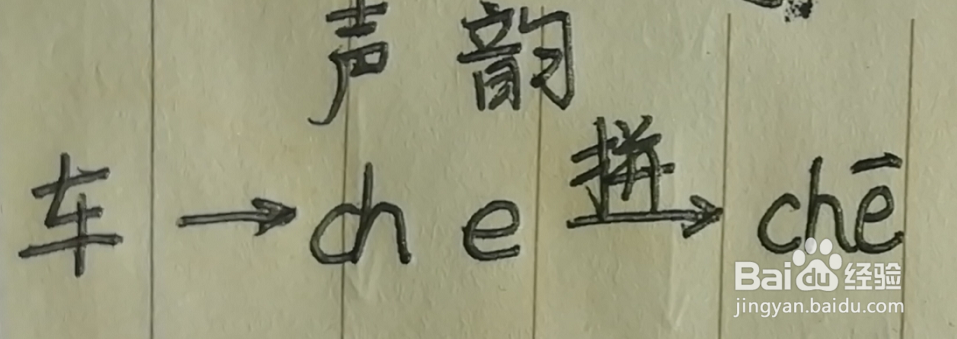 声 韵
车 → ch e 拼→ chē
Bai du 经验
jingyan.baidu.com